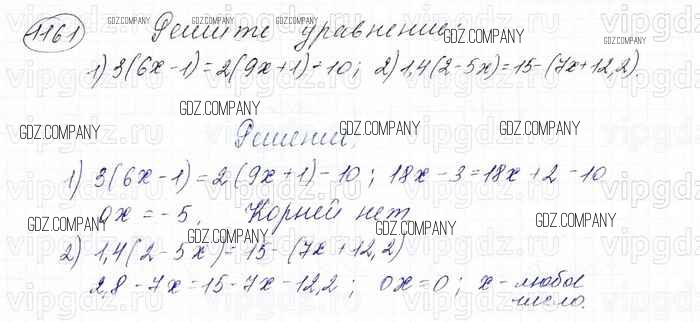 1161 Решите уравнение:
1) 3(6x-1)=2(9x+1)-10; 2) 1,4(2-5x)=15-(7x+12,2).
Решение.
1) 3(6x-1)=2(9x+1)-10; 18x-3=18x+2-10
0x=-5, Корней нет
2) 1,4(2-5x)=15-(7x+12,2)
2,8-7x=15-7x-12,2; 0x=0; x-любое
число.
GDZ.COMPANY
GDZ.COMPANY
GDZ.COMPANY
GDZ.COMPANY
GDZ.COMPANY
GDZ.COMPANY
GDZ.COMPANY
GDZ.COMPANY
GDZ.COMPANY
GDZ.COMPANY
vipgdz.ru